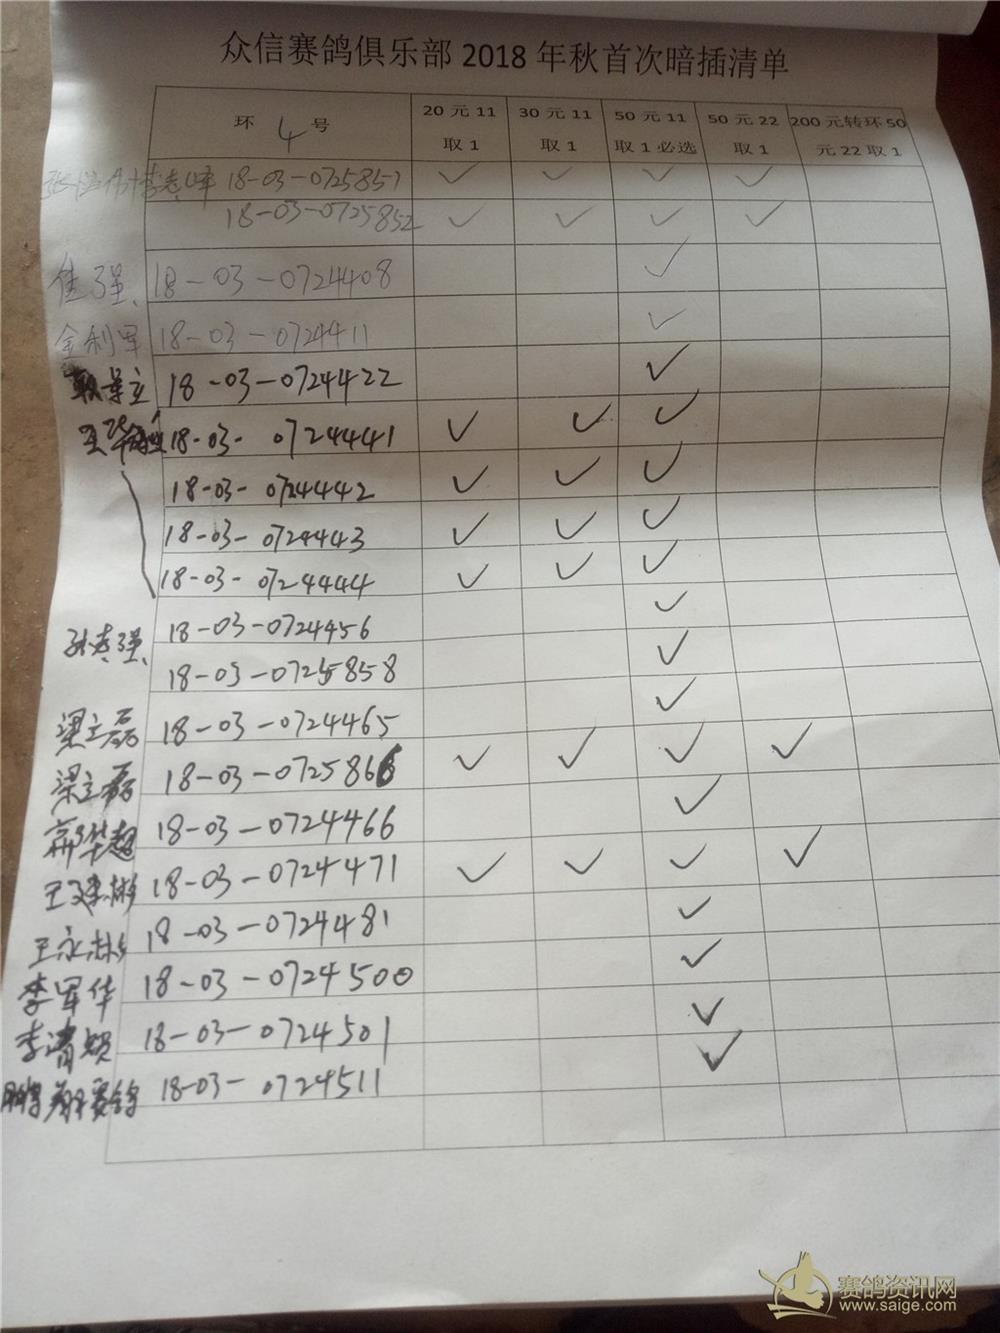 众信赛鸽俱乐部 2018 年秋首次暗插清单
环 4 号 20 元 11 取 1 30 元 11 取 1 50 元 11 取 1 必选 50 元 22 取 1 200 元转环 50 元 22 取 1
李志峰 18-03-0725851 ✓ ✓ ✓ ✓
18-03-0725852 ✓ ✓ ✓ ✓
佳强 18-03-0724408 ✓
金利军 18-03-0724411 ✓
18-03-0724422 ✓
18-03-0724441 ✓ ✓ ✓
18-03-0724442 ✓ ✓ ✓
18-03-0724443 ✓ ✓ ✓
18-03-0724444 ✓ ✓ ✓
孙志强 18-03-0724456 ✓
18-03-0725858 ✓
梁立磊 18-03-0724465 ✓
梁立磊 18-03-0725866 ✓ ✓ ✓ ✓
18-03-0724466 ✓
18-03-0724471 ✓ ✓ ✓ ✓
王永彬 18-03-0724481 ✓
李军华 18-03-0724500 ✓
李清 18-03-0724501 ✓
鹏翔赛鸽 18-03-0724511 ✓
赛鸽资讯网
www.saige.com